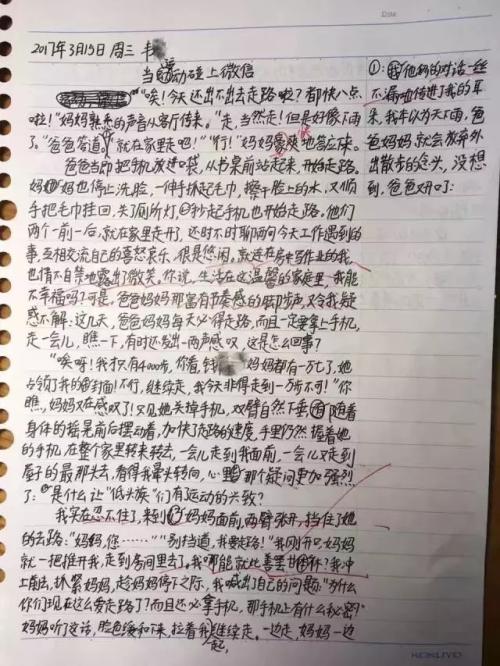 2017年3月15日 周三
当运动碰上微信
“唉!今天还出不出去走路啦?都快八点
啦!”妈妈熟悉的声音从客厅传来。“走,当然走!但是好像下雨
了。”爸爸答道,“就在家里走吧!”“行!”妈妈爽快地答应来。
爸爸当即把手机放进口袋,从书桌前站起来,开始走路。
妈妈也停止洗脸,一伸手抓起毛巾,擦干脸上的水,又顺
手把毛巾挂回,关了厕所灯,抄起手机也开始走路。他们
两个一前一后,就在家里走开了,还时不时聊两句今天工作遇到的
事,互相交流自己的喜怒哀乐,很是悠闲,就连在房中写作业的我,
也情不自禁地露出了微笑。你说,生活在这温馨的家庭里,我能
不幸福吗?可是,爸爸妈妈那富有节奏感的脚步声,又令我疑
惑不解:这几天,爸爸妈妈每天必得走路,而且一定要拿上手机,
走一会儿,瞧一下,有时还发出一两声感叹,这是怎么回事?
“唉呀!我才只有4000步,你看,钱 妈妈都有一万七了,她
占领了我的封面!不行,继续走,我今天非得走到一万步不可!”你
瞧,妈妈又在感叹了!只见她关掉手机,双臂自然下垂,随着
身体的摇晃前后摆动着,加快了走路的速度,手里仍然握着她
的手机,在整个家里转来转去,一会儿走到我面前,一会儿又走到
屋子的最那头去,看得我晕头转向,心里那个疑问更加强烈
了:“是什么让“低头族”们有运动的兴致?
我实在忍不住了,来到妈妈面前,两臂张开,挡住了她
的去路:“妈妈,您……”“别挡道,我要走路!”我刚开口,妈妈
就一把推开我,走到房间里去了,我哪能就此善罢甘休?我冲
上前去,抓紧妈妈,趁妈妈停下之际,我喊出了自己的问题:“为什么
你们现在这么爱走路了?而且还必拿手机,那手机上有什么秘密?
妈妈听了这话,脸色缓和下来,拉着我一起,继续走。一边走,妈妈一边
①:他们的对话一丝
不漏地传进了我的耳
朵,我本以为天下雨,爸
爸妈妈,就会放弃外
出散步的念头,没想
到,爸爸又开口了:
KOKUYO